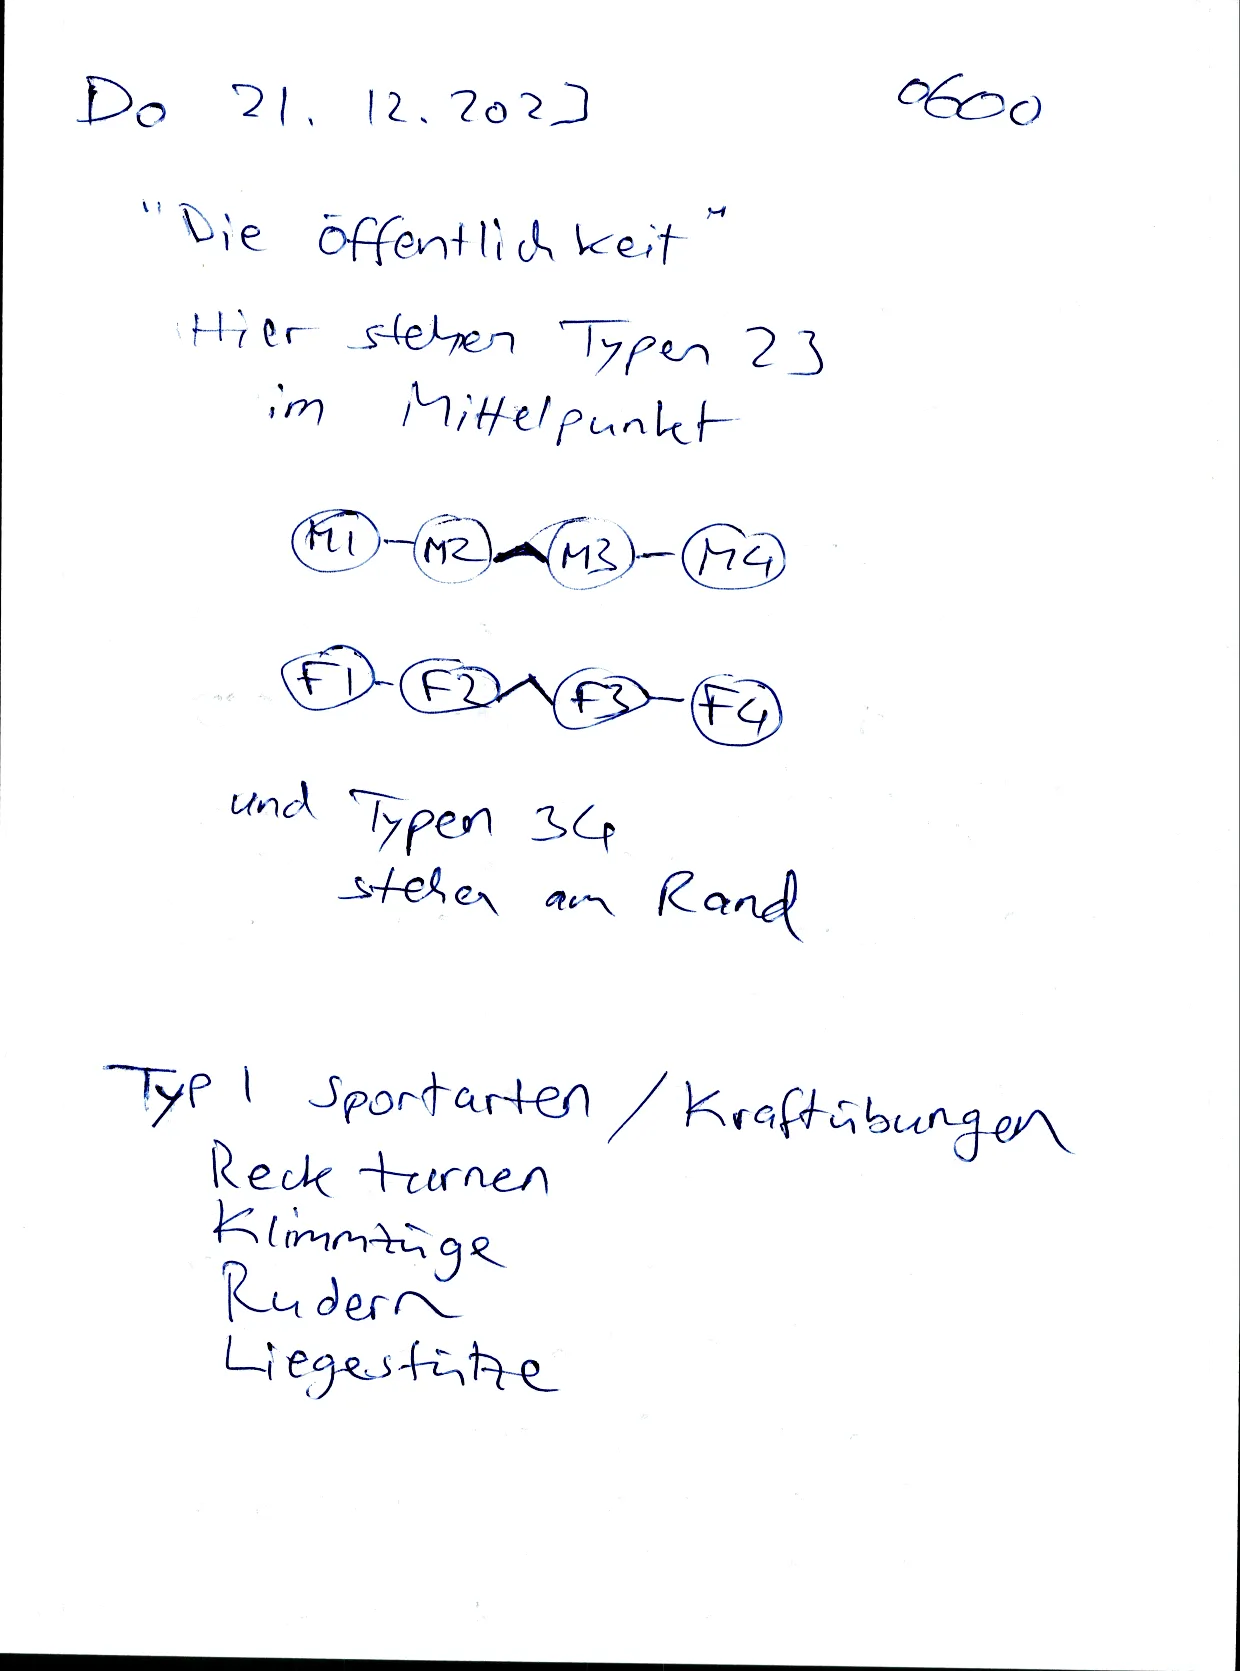 Do 21. 12. 2023 0600
"Die öffentlichkeit"
Hier stehen Typen 23
im Mittelpunkt
M1 M2 M3 M4
F1 F2 F3 F4
und Typen 34
stehen am Rand
Typ 1 Sportarten / Kraftübungen
Reck turnen
Klimmzüge
Rudern
Liegestütze